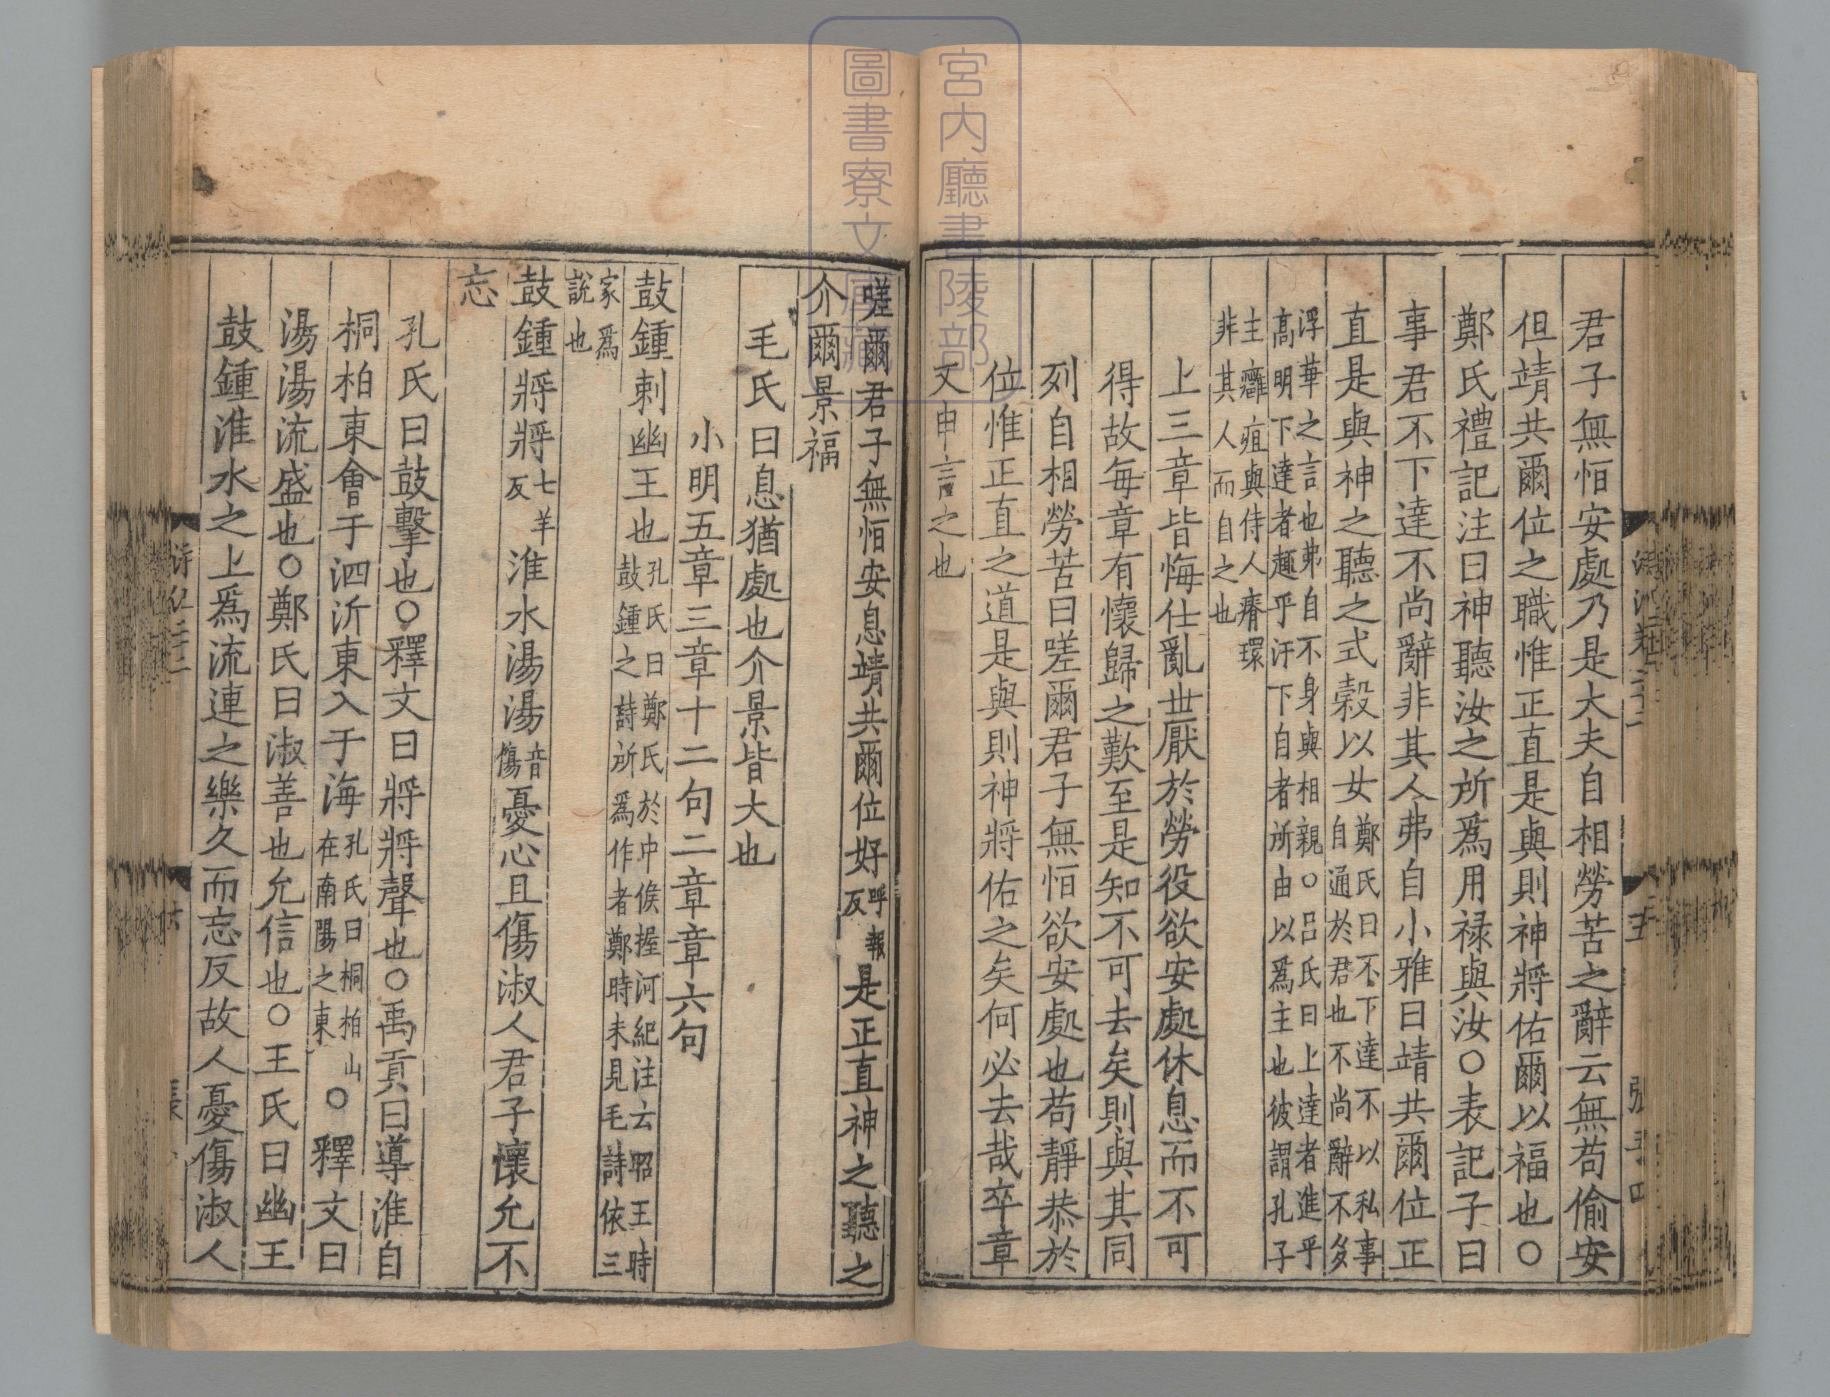 君子無恒安處乃是大夫自相勞苦之辭云無苟偷安
但靖共爾位之職惟正直是與則神將佑爾以福也○
鄭氏禮記注曰神聽汝之所爲用祿與汝○表記子曰
事君不下達不尚辭非其人弗自小雅曰靖共爾位正
直是與神之聽之式穀以女鄭氏曰不下達不以私事自通於君也不尚辭不多
浮華之言也弗自不身與相親○呂氏曰上達者進乎高明下達者趣乎汙下自者所由以爲主也彼謂孔子
主癰疽與侍人瘠環非其人而自之也
上三章皆悔仕亂世厭於勞役欲安處休息而不可
得故每章有懷歸之歎至是知不可去矣則與其同
列自相勞苦曰嗟爾君子無恒欲安處也苟靜恭於
位惟正直之道是與則神將佑之矣何必去哉卒章
又申言之也
嗟爾君子無恒安息靖共爾位好呼報反是正直神之聽之
介爾景福
毛氏曰息猶處也介景皆大也
小明五章三章十二句二章章六句
鼓鍾刺幽王也孔氏曰鄭氏於中候握河紀注云昭王時鼓鍾之詩所爲作者鄭時未見毛詩依三
家爲說也
鼓鍾將將七羊反淮水湯湯音傷憂心且傷淑人君子懷允不
忘
孔氏曰鼓擊也○釋文曰將將聲也○禹貢曰導淮自
桐柏東會于泗沂東入于海孔氏曰桐柏山在南陽之東○釋文曰
湯湯流盛也○鄭氏曰淑善也允信也○王氏曰幽王
鼓鍾淮水之上爲流連之樂久而忘反故人憂傷淑人
宮內廳書陵部
圖書寮文庫藏